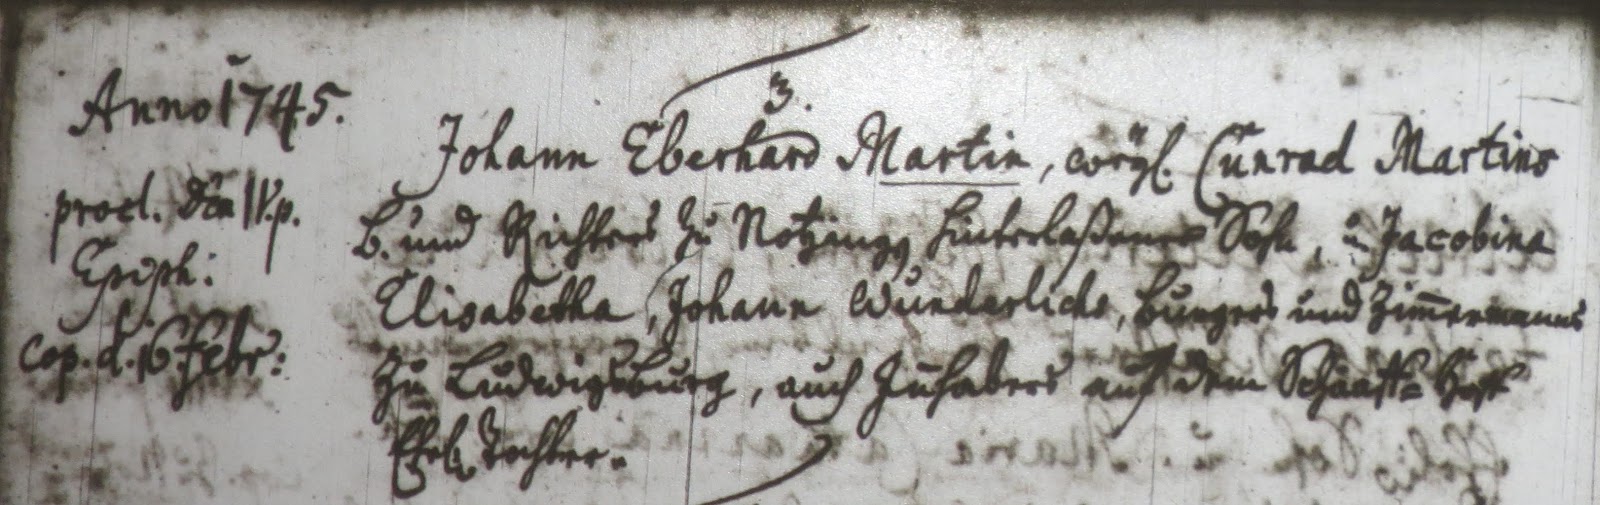 Anno 1745.
procl. den IV. p.
Epiph:
cop. d. 16 Febr:
3.
Johann Eberhard Martin, weyl. Cunrad Martins
B. und Richters zu Notzingen hinterlaßener Sohn, u. Jacobina
Elisabetha, Johann Wunderlichs, burgers und Zimmermanns
zu Ludwigsburg, auch Inhabers auf dem Schaaff-Hoff
Ehel. Tochter.